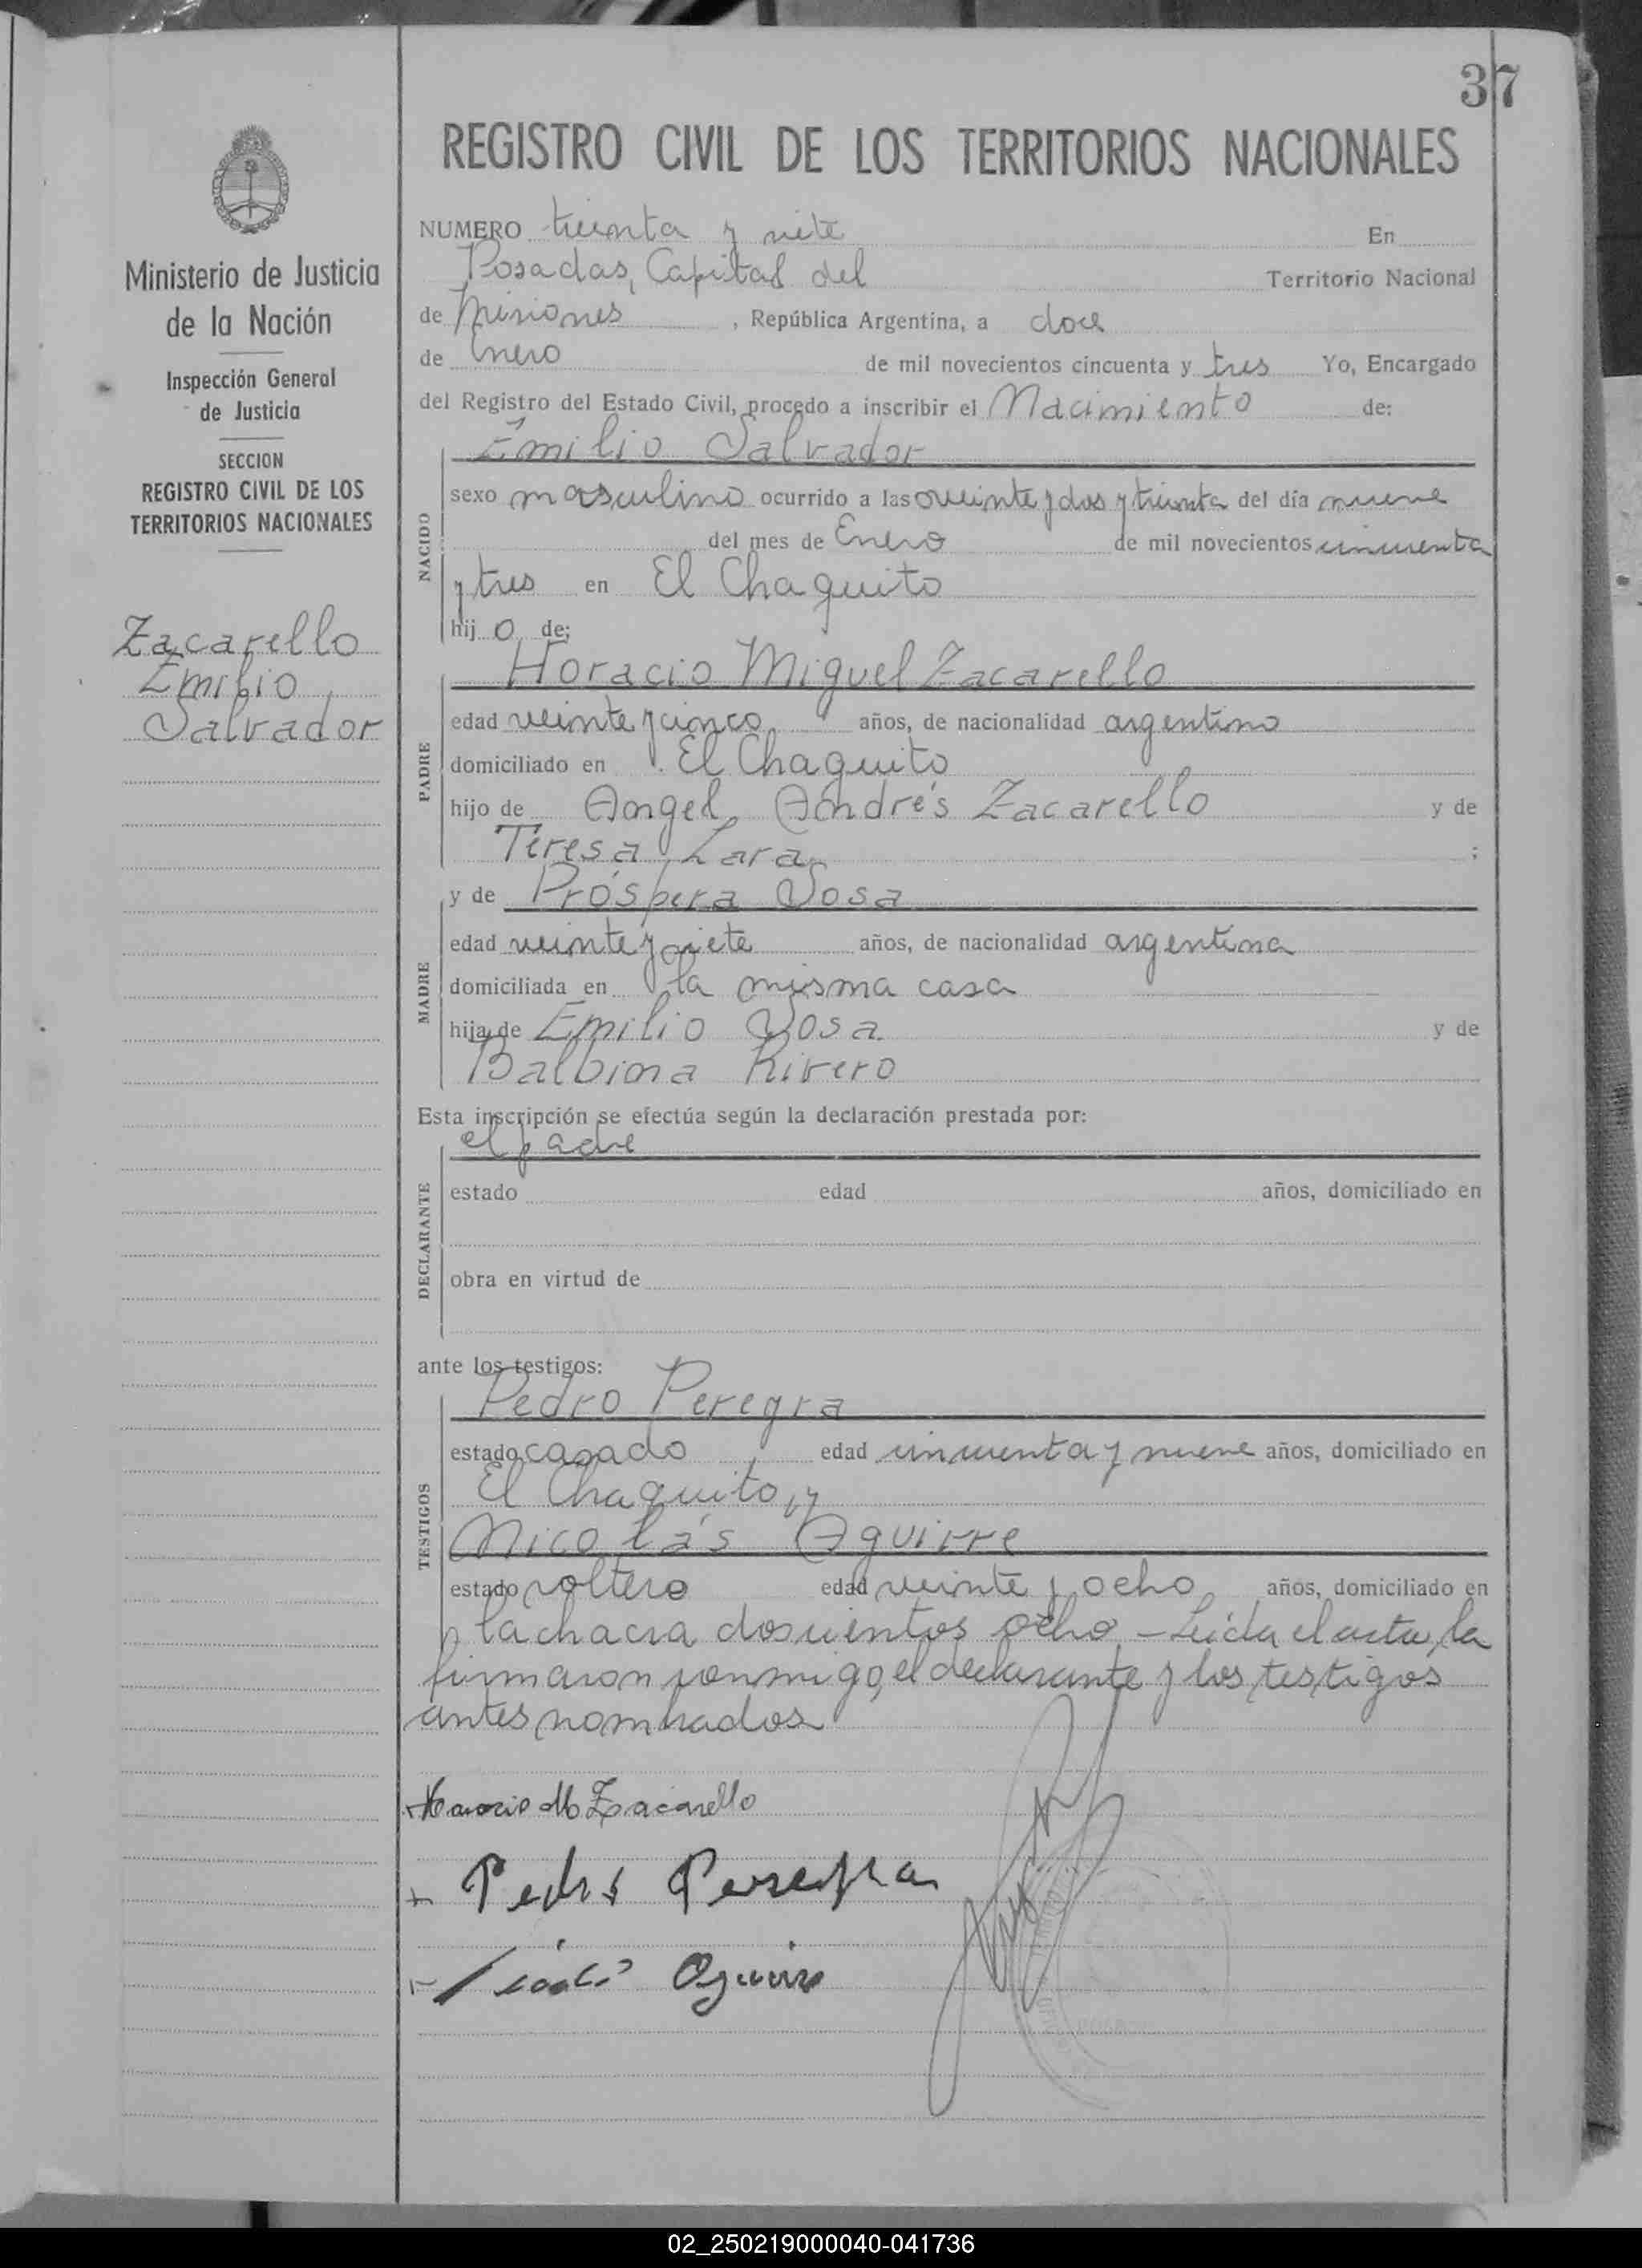 37
REGISTRO CIVIL DE LOS TERRITORIOS NACIONALES
Ministerio de Justicia
de la Nación
Inspección General
de Justicia
SECCION
REGISTRO CIVIL DE LOS
TERRITORIOS NACIONALES
Zacarello
Emilio
Salvador
NUMERO treinta y siete En
Posadas, Capital del Territorio Nacional
de Misiones, República Argentina, a doce
de Enero de mil novecientos cincuenta y tres Yo, Encargado
del Registro del Estado Civil, procedo a inscribir el Nacimiento de:
NACIDO
Emilio Salvador
sexo masculino ocurrido a las veinte y dos y treinta del día nueve
del mes de Enero de mil novecientos cincuenta
y tres en El Chaquito
hij o de:
PADRE
Horacio Miguel Zacarello
edad veinte y cinco años, de nacionalidad argentino
domiciliado en El Chaquito
hijo de Angel Andrés Zacarello y de
Teresa Lara ;
MADRE
y de Próspera Sosa
edad veinte y siete años, de nacionalidad argentina
domiciliada en la misma casa
hija de Emilio Sosa y de
Balbina Rivero
Esta inscripción se efectúa según la declaración prestada por:
DECLARANTE
el padre
estado edad años, domiciliado en
obra en virtud de
ante los testigos:
TESTIGOS
Pedro Peregra
estado casado edad cincuenta y nueve años, domiciliado en
El Chaquito, y
Nicolás Aguirre
estado soltero edad veinte y ocho años, domiciliado en
la chacra doscientos ocho - Leída el acta, la
firmaron conmigo, el declarante y los testigos
antes nombrados
Horacio M Zacarello
Pedro Peregra
Aguirre
02_250219000040-041736